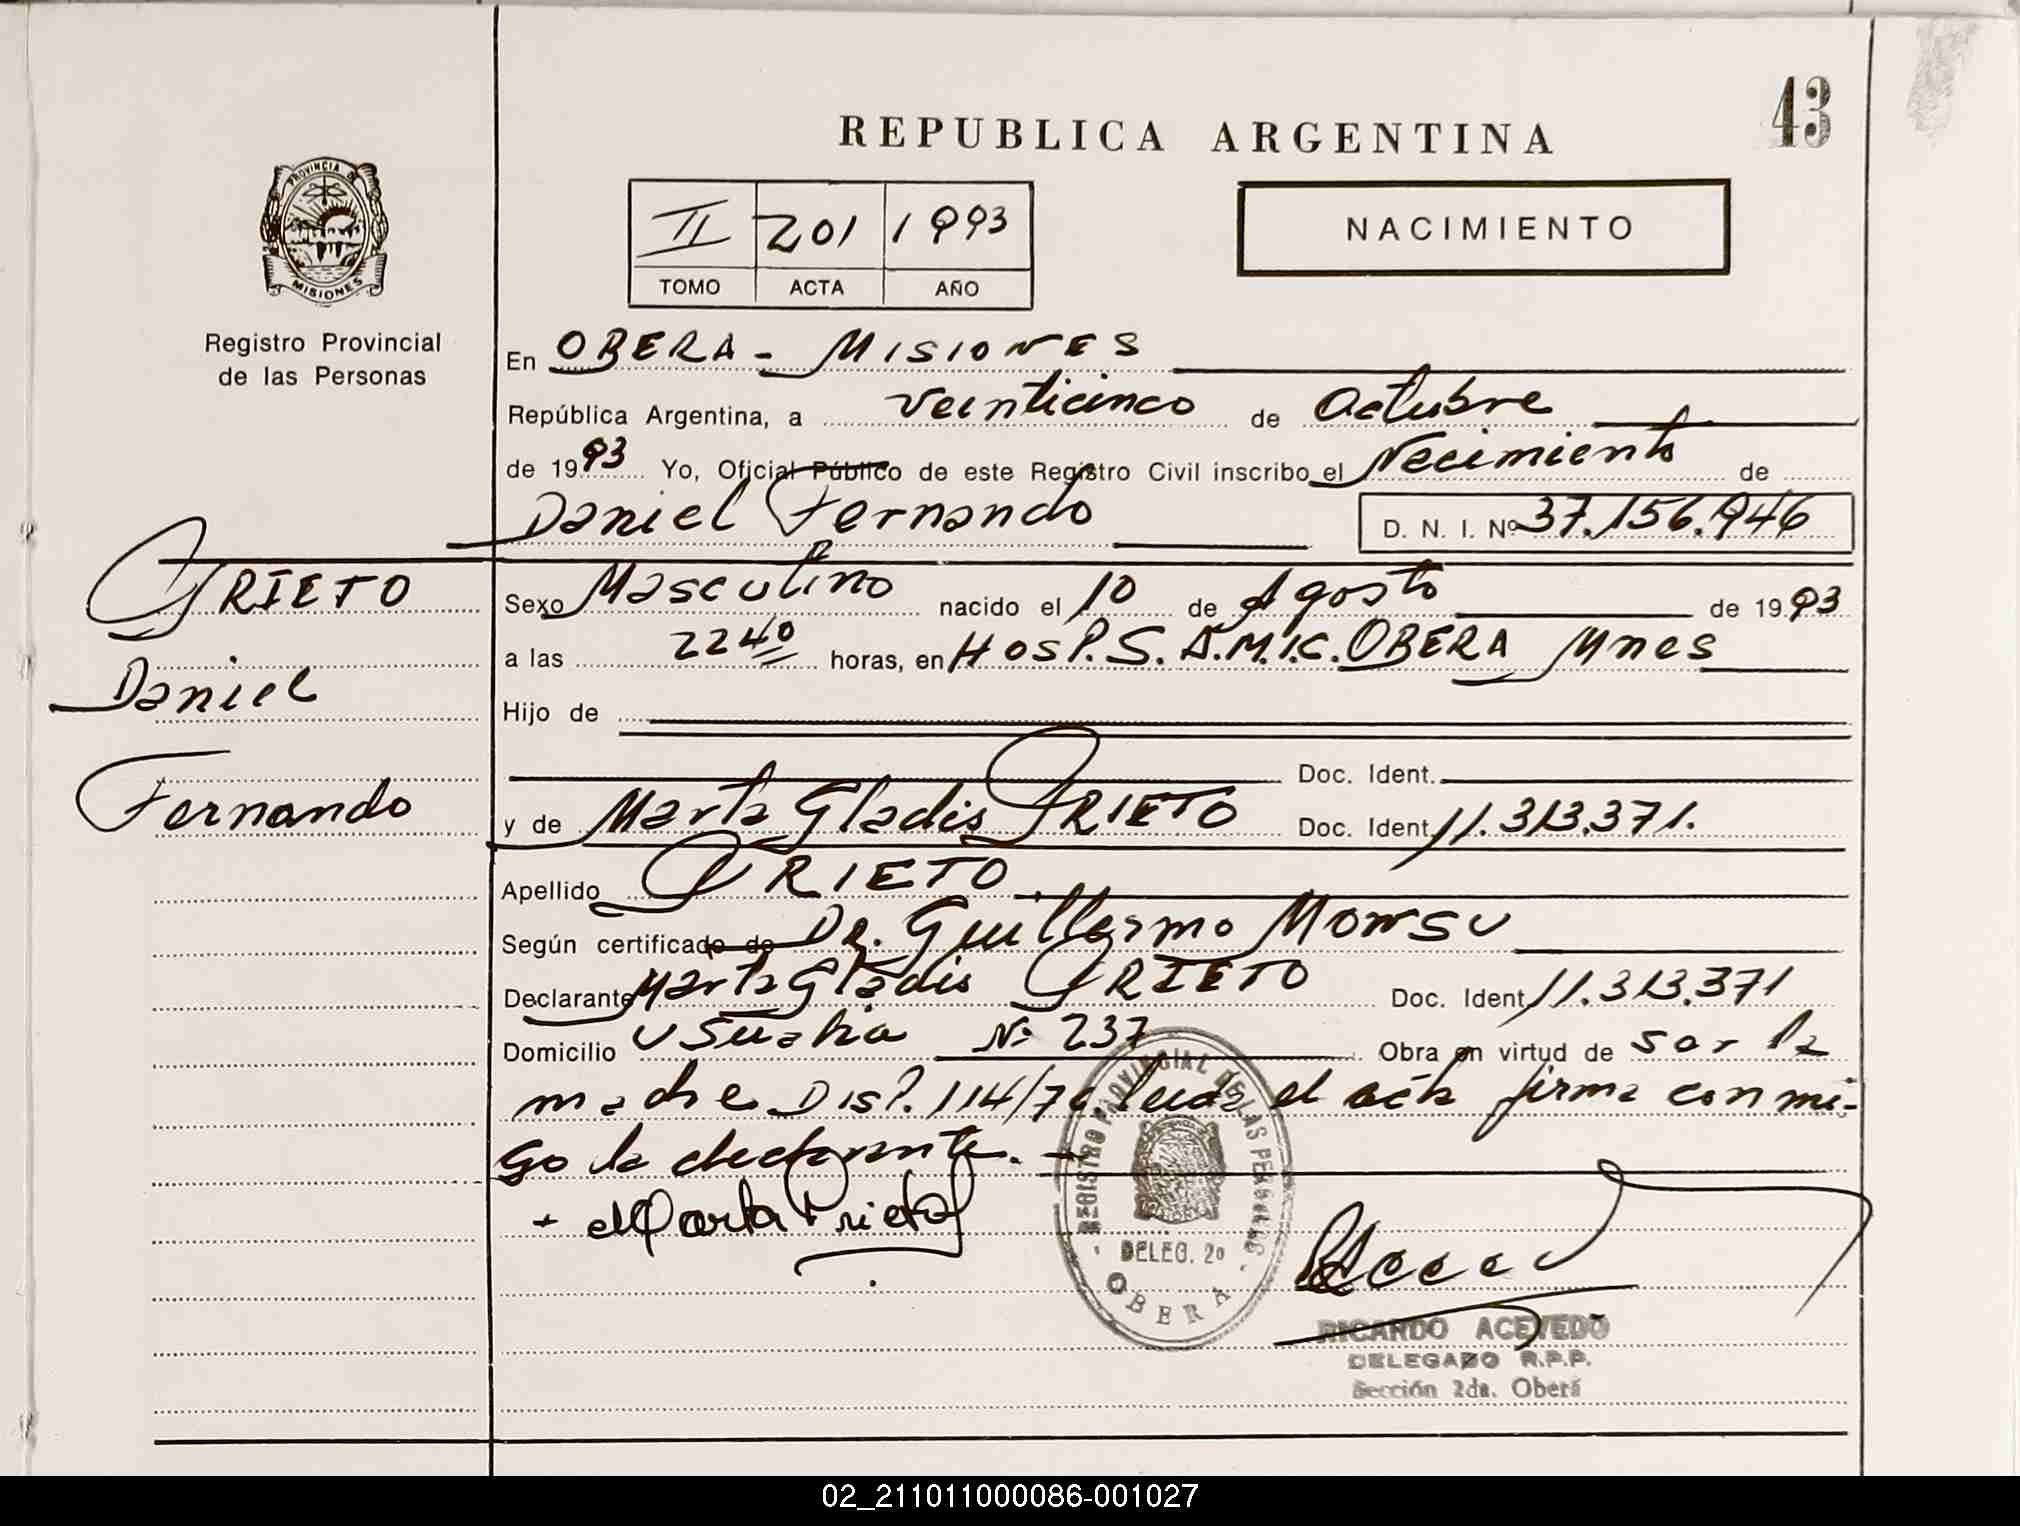 43
REPUBLICA ARGENTINA
PROVINCIA DE
MISIONES
Registro Provincial
de las Personas
II 201 1993
TOMO ACTA AÑO
NACIMIENTO
En OBERA - MISIONES
República Argentina, a veinticinco de Octubre
de 1993 Yo, Oficial Público de este Registro Civil inscribo el Nacimiento de
Daniel Fernando D. N. I. Nº 37.156.946
PRIETO
Daniel
Fernando
Sexo Masculino nacido el 10 de Agosto de 1993
a las 2240 horas, en HosP. S.A.M.I.C. OBERA Mnes
Hijo de
Doc. Ident.
y de Marta Gladis PRIETO Doc. Ident. 11.313.371.
Apellido PRIETO
Según certificado de Dr. Guillermo MONSU
Declarante Marta Gladis PRIETO Doc. Ident. 11.313.371
Domicilio Usuahia Nº 237 Obra en virtud de ser la
madre Disp. 114/76 leida el acta firma conmi-
go la declarante. -
+ Marta Prieto
REGISTRO PROVINCIAL DE LAS PERSONAS
DELEG. 2º
OBERA
RICARDO ACEVEDO
DELEGADO R.P.P.
Sección 2da. Oberá
02_211011000086-001027